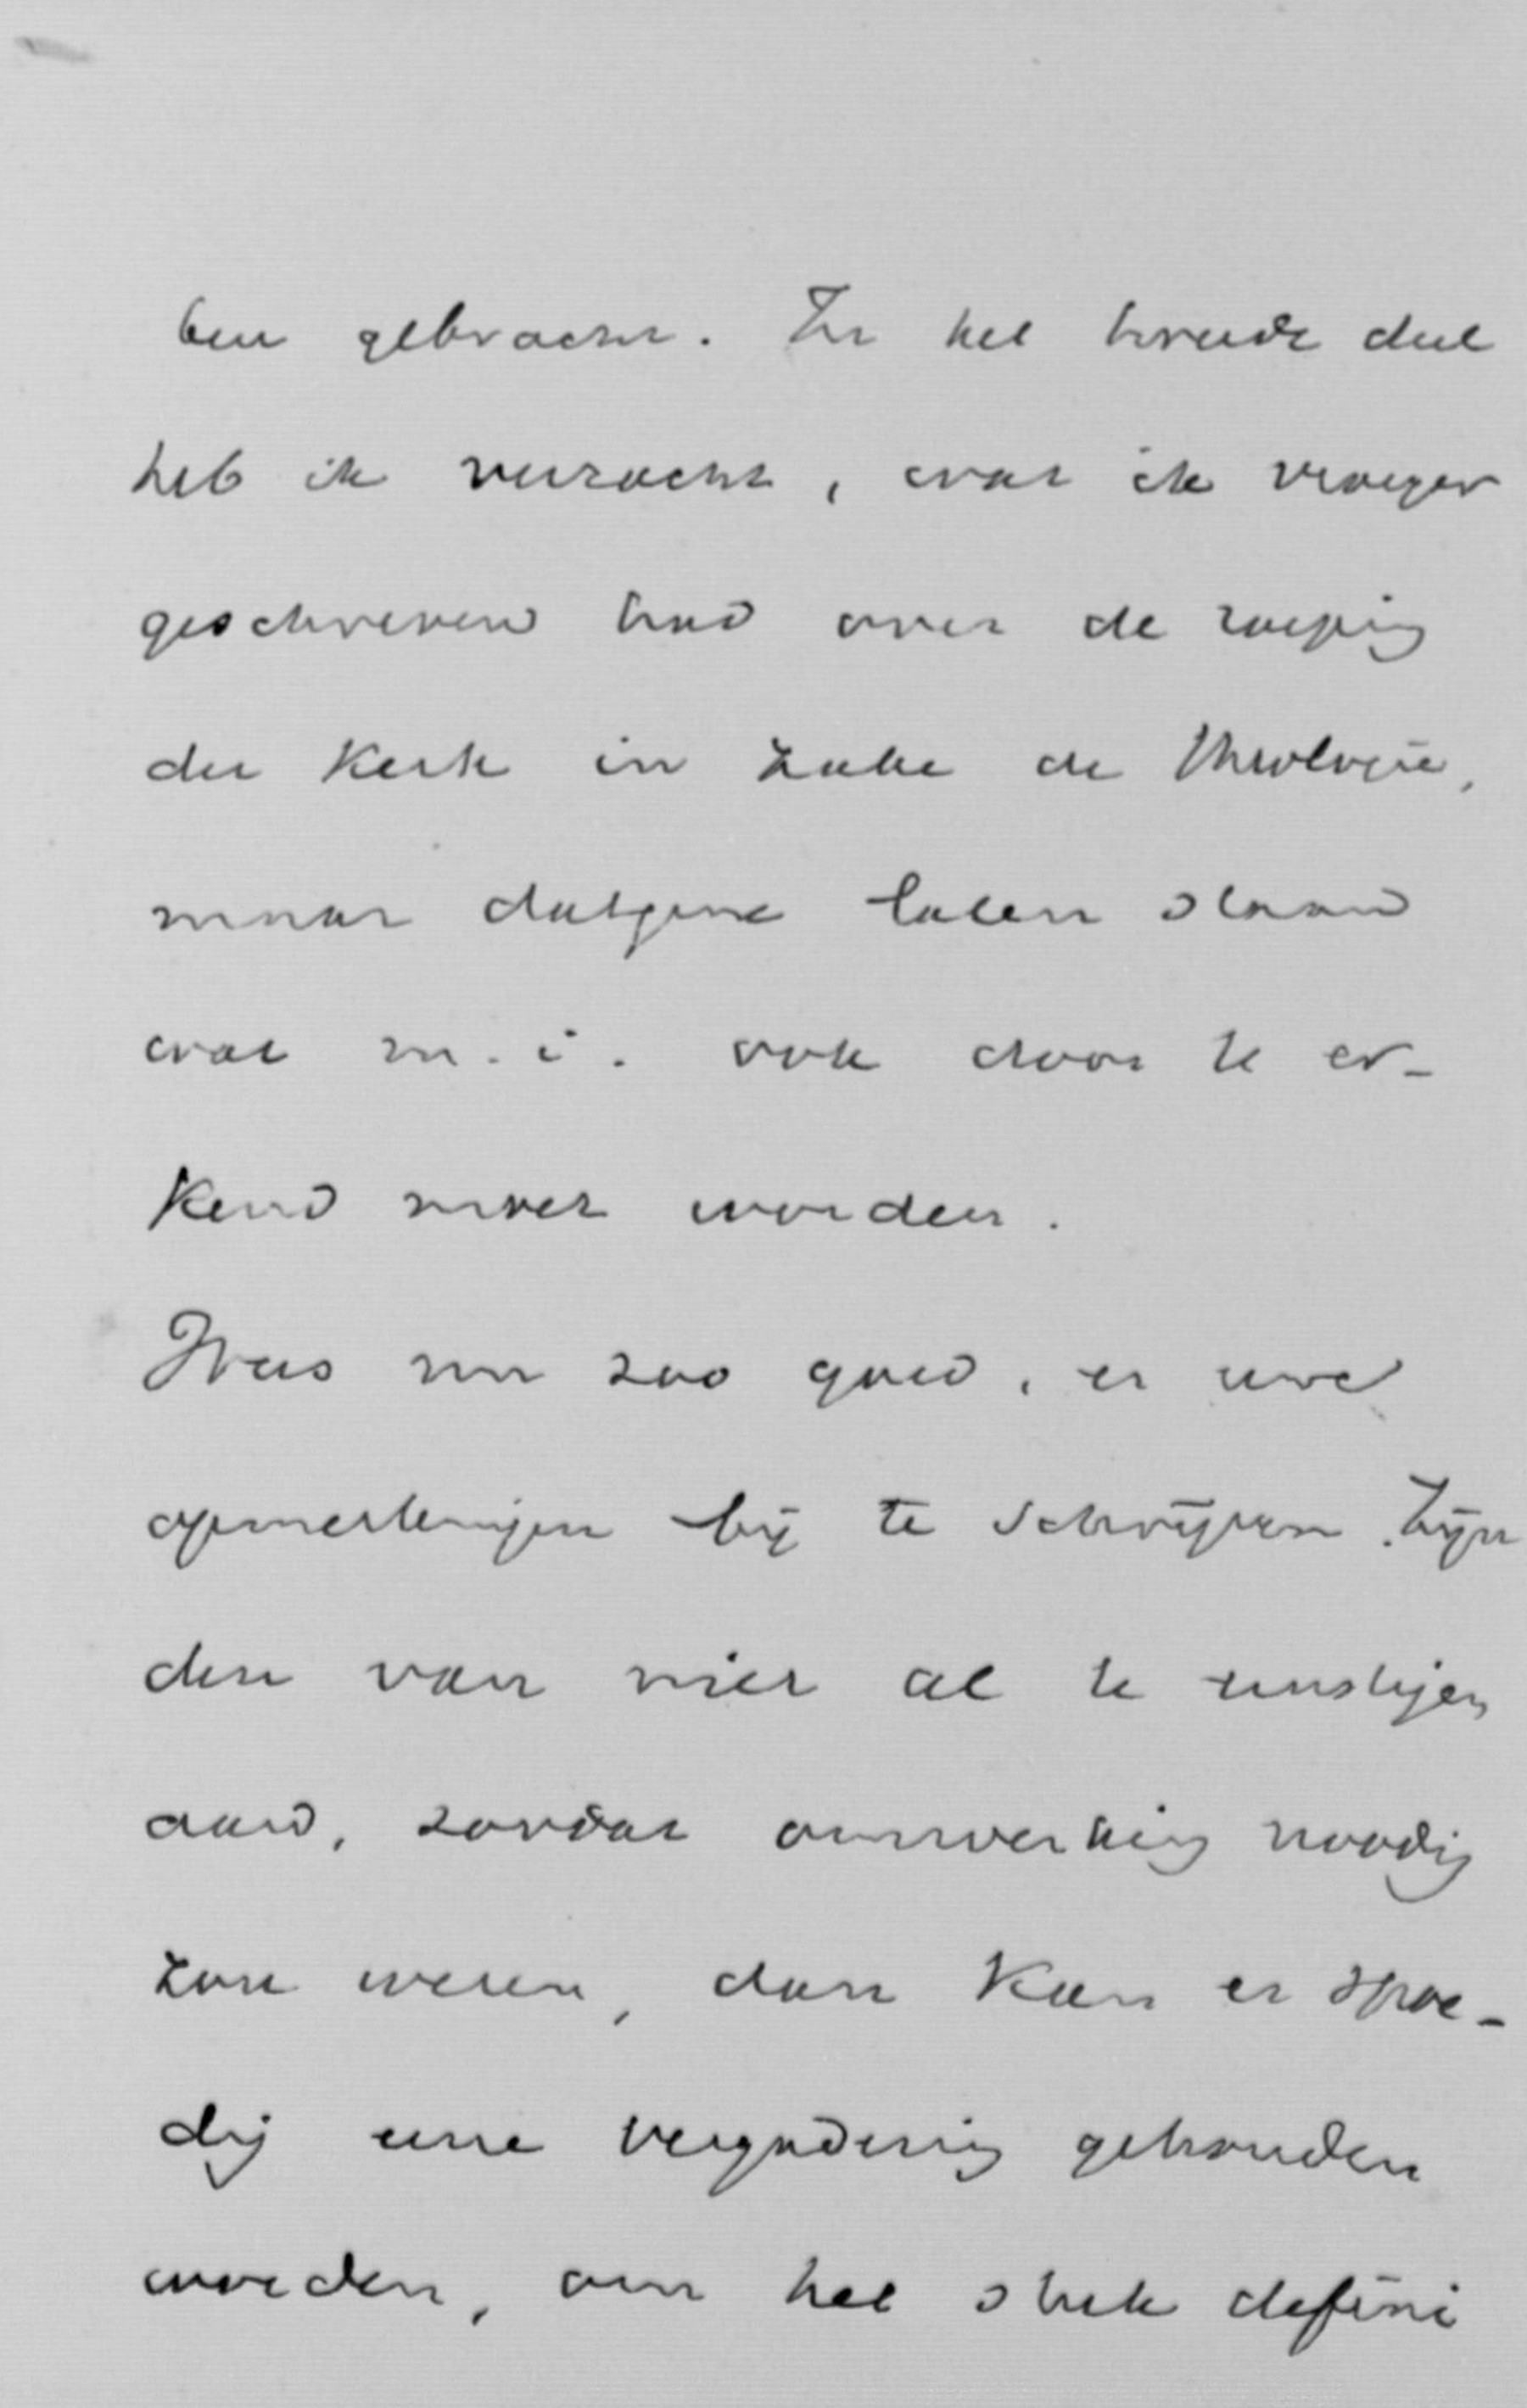 ben gebracht. In het tweede deel
heb ik verzacht, wat ik vroeger
geschreven had over de roeping
der Kerk in zake de Theologie,
maar datgene laten staan
wat m.i. ook door te er-
kend moet worden.
Wees nu zoo goed, er uwe
opmerkingen bij te schrijven. Zijn
deze van niet al te ernstigen
aard, zoodat omwerking noodig
zou wezen, dan kan er spoe-
dig eene vergadering gehouden
worden, om het stuk defini